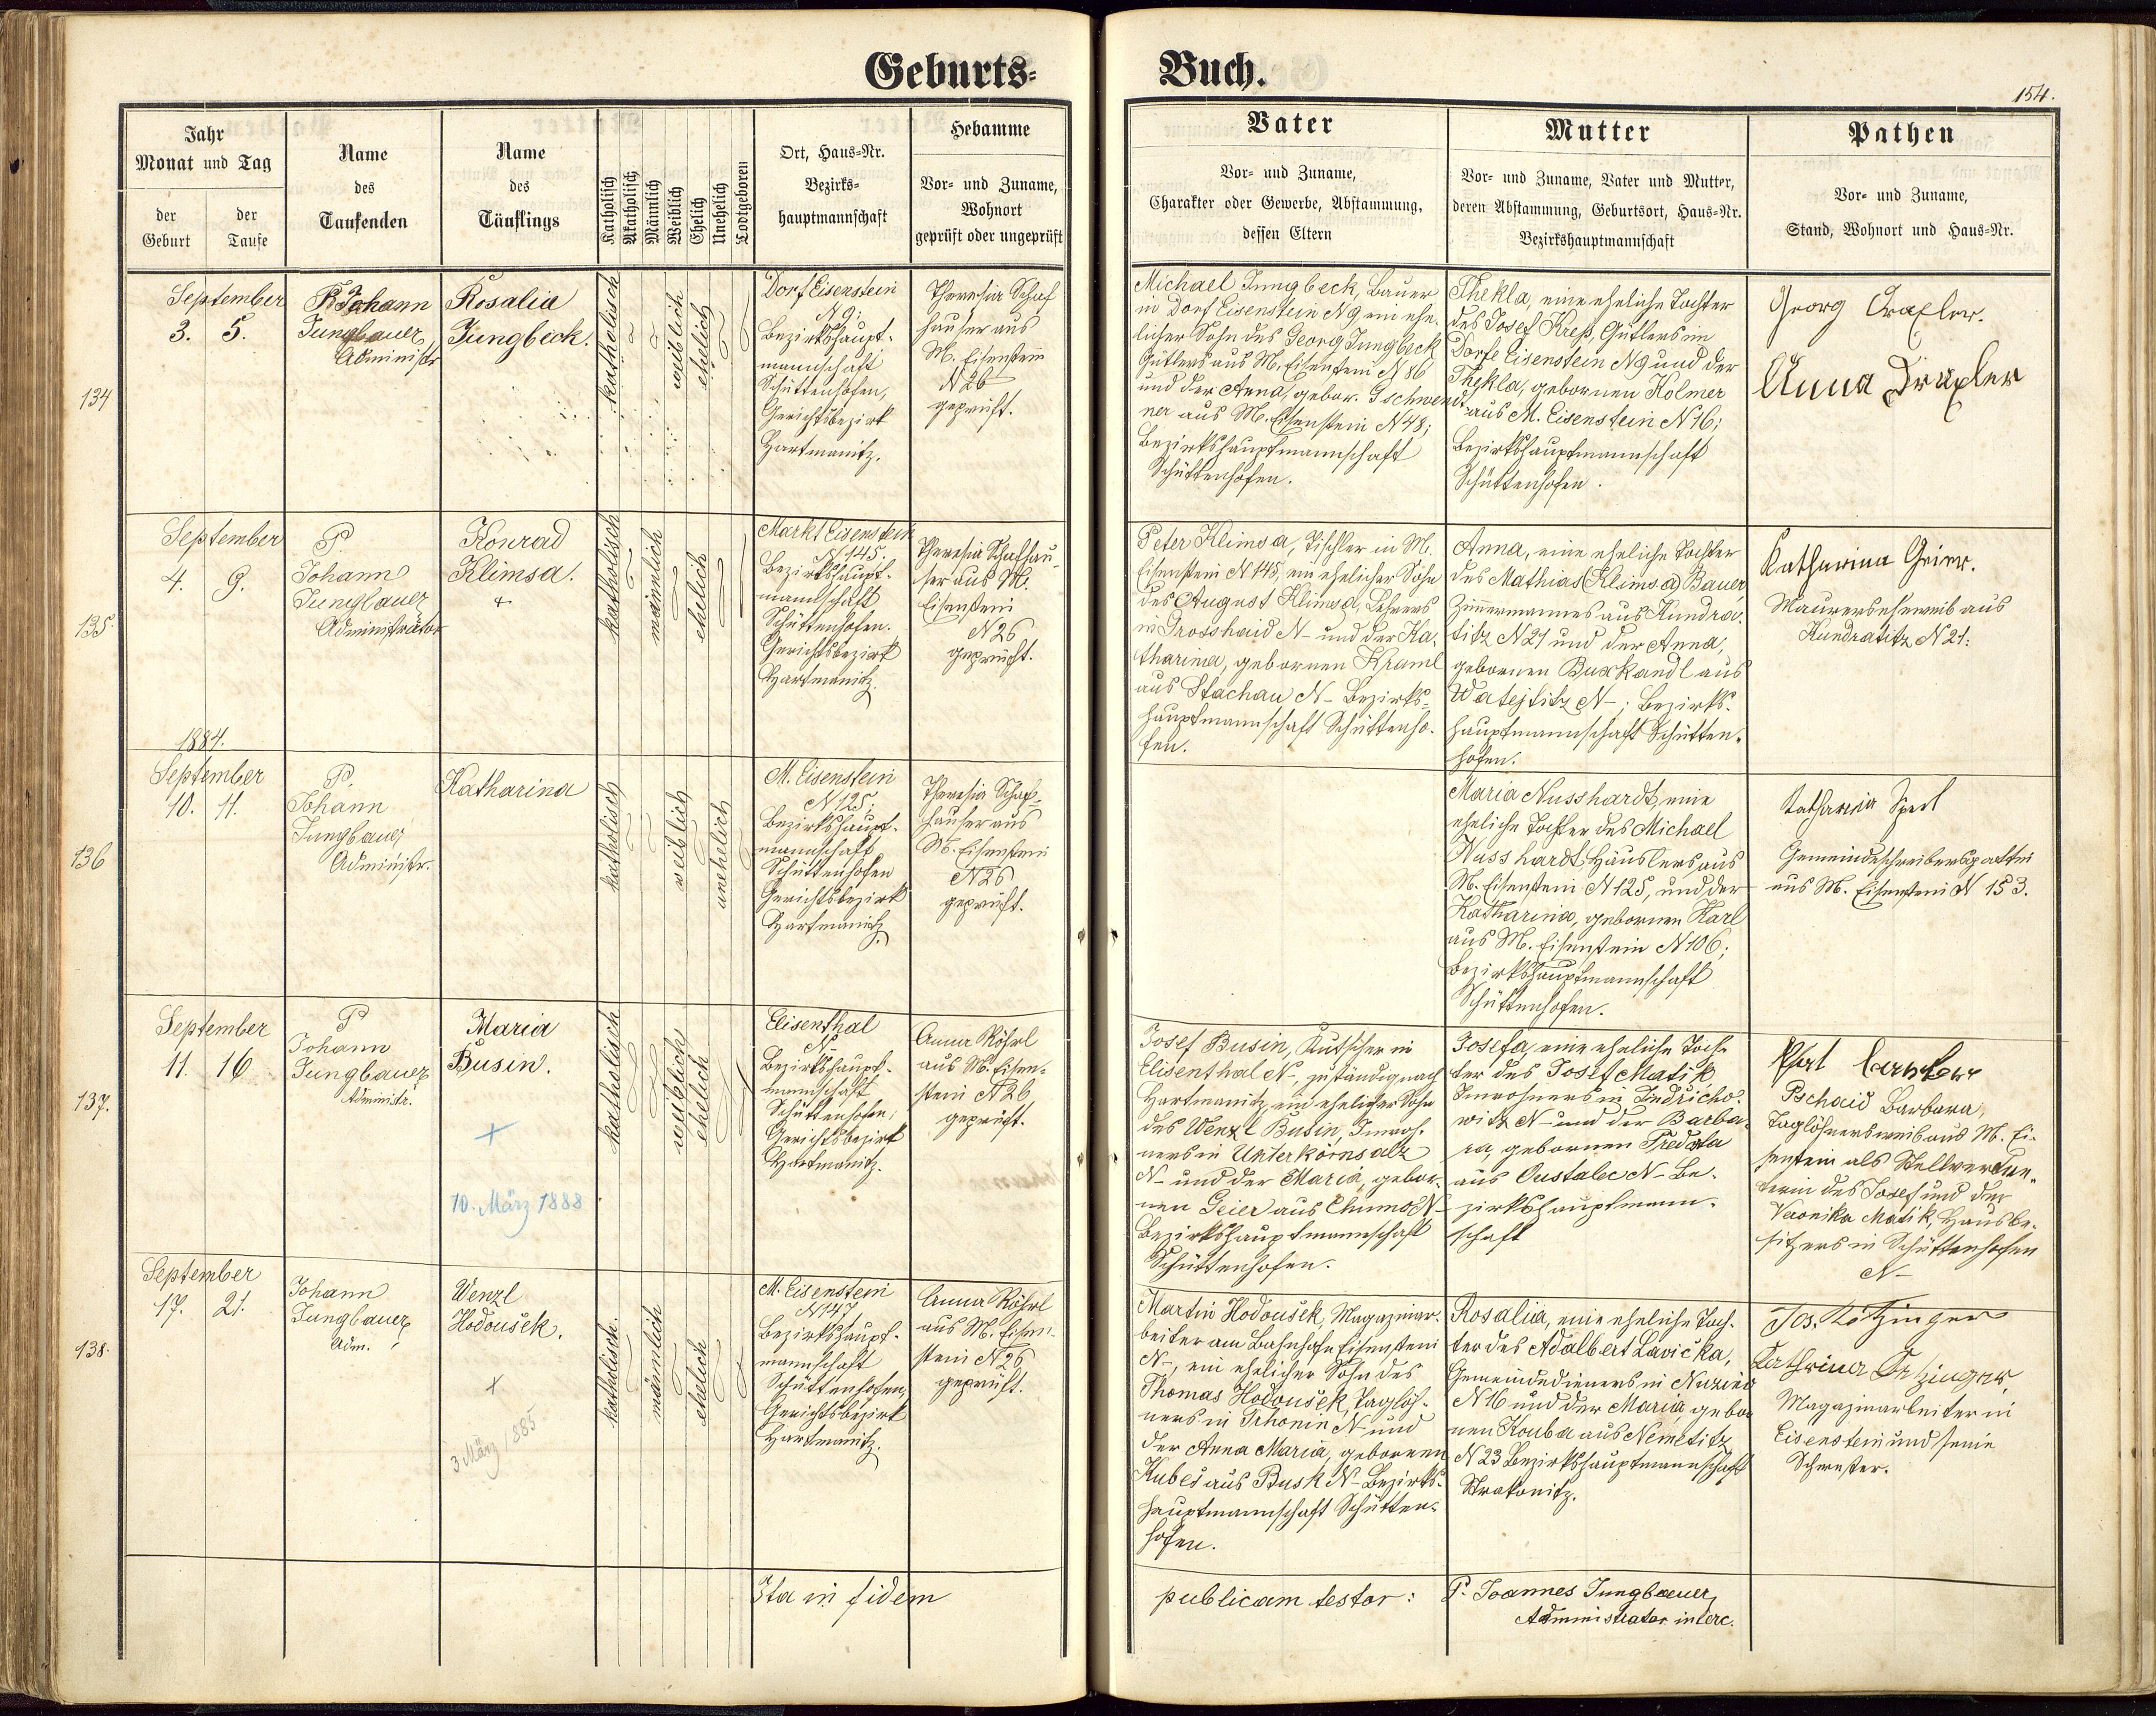 Geburts-
Buch.
154.
Jahr
Monat und Tag
der
Geburt
der
Taufe
Name
des
Taufenden
Name
des
Täuflings
Katholisch
Akatholisch
Männlich
Weiblich
Ehelich
Unehelich
Todtgeboren
Ort, Haus-Nr.
Bezirks-
hauptmannschaft
Hebamme
Vor- und Zuname,
Wohnort
geprüft oder ungeprüft
Vater
Vor- und Zuname,
Charakter oder Gewerbe, Abstammung,
dessen Eltern
Mutter
Vor- und Zuname, Vater und Mutter,
deren Abstammung, Geburtsort, Haus-Nr.
Bezirkshauptmannschaft
Pathen
Vor- und Zuname,
Stand, Wohnort und Haus-Nr.
134
September
3. 5.
P. Johann
Jungbauer,
Administr
Rosalia
Jungbeck.
katholisch
weiblich
ehelich
Dorf Eisenstein
N 9;
Bezirkshaupt-
mannschaft
Schüttenhofen,
Gerichtsbezirk
Hartmanitz.
Theresia Schaf
häuser aus
M. Eisenstein
N 26
geprüft.
Michael Jungbeck, Bauer
in Dorf Eisenstein N 9 ein ehe-
licher Sohn des Georg Jungbeck
Gütlers aus M. Eisenstein N 86
und der Anna, gebor. Gschwend
ner aus M. Eisenstein N 48;
Bezirkshauptmannschaft
Schüttenhofen.
Thekla, eine eheliche Tochter
des Josef Kreß, Gütlers im
Dorfe Eisenstein N 9 und der
Thekla, gebornen Holmer
aus M. Eisenstein N 16;
Bezirkshauptmannschaft
Schüttenhofen.
Georg Draxler.
Anna Draxler
135.
September
4. 9.
P.
Johann
Jungbauer
Administrator
Konrad
Klimsa.
+
katholisch
männlich
ehelich
Markt Eisenstein
N 145.
Bezirkshaupt-
mannschaft
Schüttenhofen.
Gerichtsbezirk
Hartmanitz.
Theresia Schafhäu-
ser aus M.
Eisenstein
N 26
geprüft.
Peter Klimsa, Tischler in M.
Eisenstein N 145, ein ehelicher Sohn
des August Klimsa, Lehrers
in Grosshaid N- und der Ka-
tharina, gebornen Kraml
aus Stachau N- Bezirks-
hauptmannschaft Schüttenho-
fen.
Anna, eine eheliche Tochter
des Mathias (Klimsa) Bauer
Zimmermannes aus Kundra-
titz N 21 und der Anna,
gebornen Buxkandl aus
Watejtitz N-; Bezirks-
hauptmannschaft Schütten-
hofen.
Katharina
Maurerseheweib aus
Kundratitz N 21.
136
1884.
September
10. 11.
P.
Johann
Jungbauer
Administr.
Katharina
katholisch
weiblich
unehelich
M. Eisenstein
N 125;
Bezirkshaupt-
mannschaft
Schüttenhofen
Gerichtsbezirk
Hartmanitz.
Theresia Schaf-
häuser aus
M. Eisenstein
N 26
geprüft.
Maria Nusshardt, eine
eheliche Tochter des Michael
Nusshardt Häuslers aus
M. Eisenstein N 125, und der
Katharina, gebornen Karl
aus M. Eisenstein N 106;
Bezirkshauptmannschaft
Schüttenhofen.
Katharina Sperl
Gemeindeschreibersgattin
aus M. Eisenstein N 153.
137.
September
11. 16
P
Johann
Jungbauer
Administr.
Maria
Busin.
+
10. März 1888
katholisch
weiblich
ehelich
Elisenthal
N-
Bezirkshaupt-
mannschaft
Schüttenhofen,
Gerichtsbezirk
Hartmanitz.
Anna Röhrl
aus M. Eisen-
stein N 26
geprüft.
Josef Busin, Kutscher in
Elisenthal N-, zuständig nach
Hartmanitz, ein ehelicher Sohn
des Wenzl Busin, Inwoh-
ners in Unterkörnsalz
N- und der Maria, gebor-
nen Geier aus Chumo N-
Bezirkshauptmannschaft
Schüttenhofen.
Josefa, eine eheliche Toch-
ter des Josef Matik
Inwohners in Indricho-
witz N- und der Barba-
ra, gebornen Predota
aus Oustalec N- Be-
zirkshauptmann-
schaft
Pschaid Barbara,
Taglöhnersweib aus M. Ei-
senstein als Stellvertre-
terin des Josef und der
Veronika Matik, Hausbe-
sitzers in Schüttenhofen
N-
138.
September
17. 21.
Johann
Jungbauer
Adm.
Wenzl
Hodoušek.
+
3 März 1885
katholisch.
männlich
ehelich
M. Eisenstein
N 147
Bezirkshaupt-
mannschaft
Schüttenhofen,
Gerichtsbezirk
Hartmanitz.
Anna Röhrl
aus M. Eisen-
stein N 26
geprüft.
Martin Hodoušek, Magazinar-
beiter am Bahnhofe Eisenstein
N-, ein ehelicher Sohn des
Thomas Hodoušek, Taglöh-
ners in Trhonin N- und
der Anna Maria, gebornen
Kubeš aus Busk N- Bezirks-
hauptmannschaft Schütten-
hofen.
Rosalia, eine eheliche Toch-
ter des Adalbert Lavička,
Gemeindedieners in Nuzin
N 16 und der Maria gebor
nen Kouba aus Nemetitz
N 23 Bezirkshauptmannschaft
Strakonitz.
Jos. Kötzinger
Magazinarbeiter in
Eisenstein und seine
Schwester.
Ita in fidem
publicam testor:
P. Joannes Jungbauer,
Administrator interc.